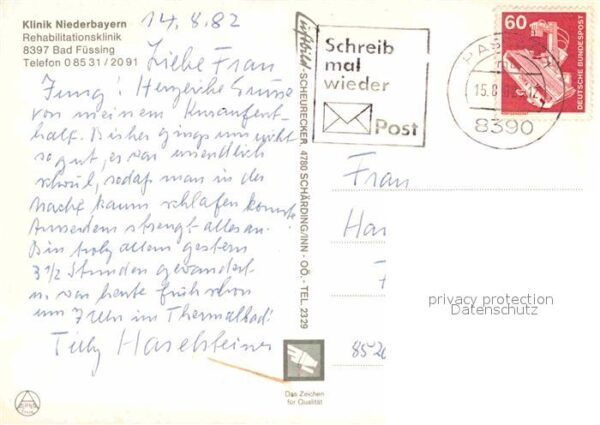 Klinik Niederbayern
Rehabilitationsklinik
8397 Bad Füssing
Telefon 0 85 31 / 20 91
14.8.82
Liebe Frau
Jung! Herzliche Grüsse
von meinem Kuraufent-
halt. Bisher gings mir nicht
so gut, es war unendlich
schwül, sodaß man in der
Nacht kaum schlafen konnte.
Ausserdem strengt alles an.
Bin trotz allem gestern
3 1/2 Stunden gewandert
u. war heute früh schon
um 7 Uhr im Thermalbad!
Tilly Haselsteiner
Luftbild-SCHEURECKER, 4780 SCHÄRDING/INN - OÖ. - TEL. 2329
Das Zeichen
für Qualität
Schreib
mal
wieder
Post
PASSAU
15.8.82
8390
60
DEUTSCHE BUNDESPOST
Frau
Has
privacy protection
Datenschutz
85-20